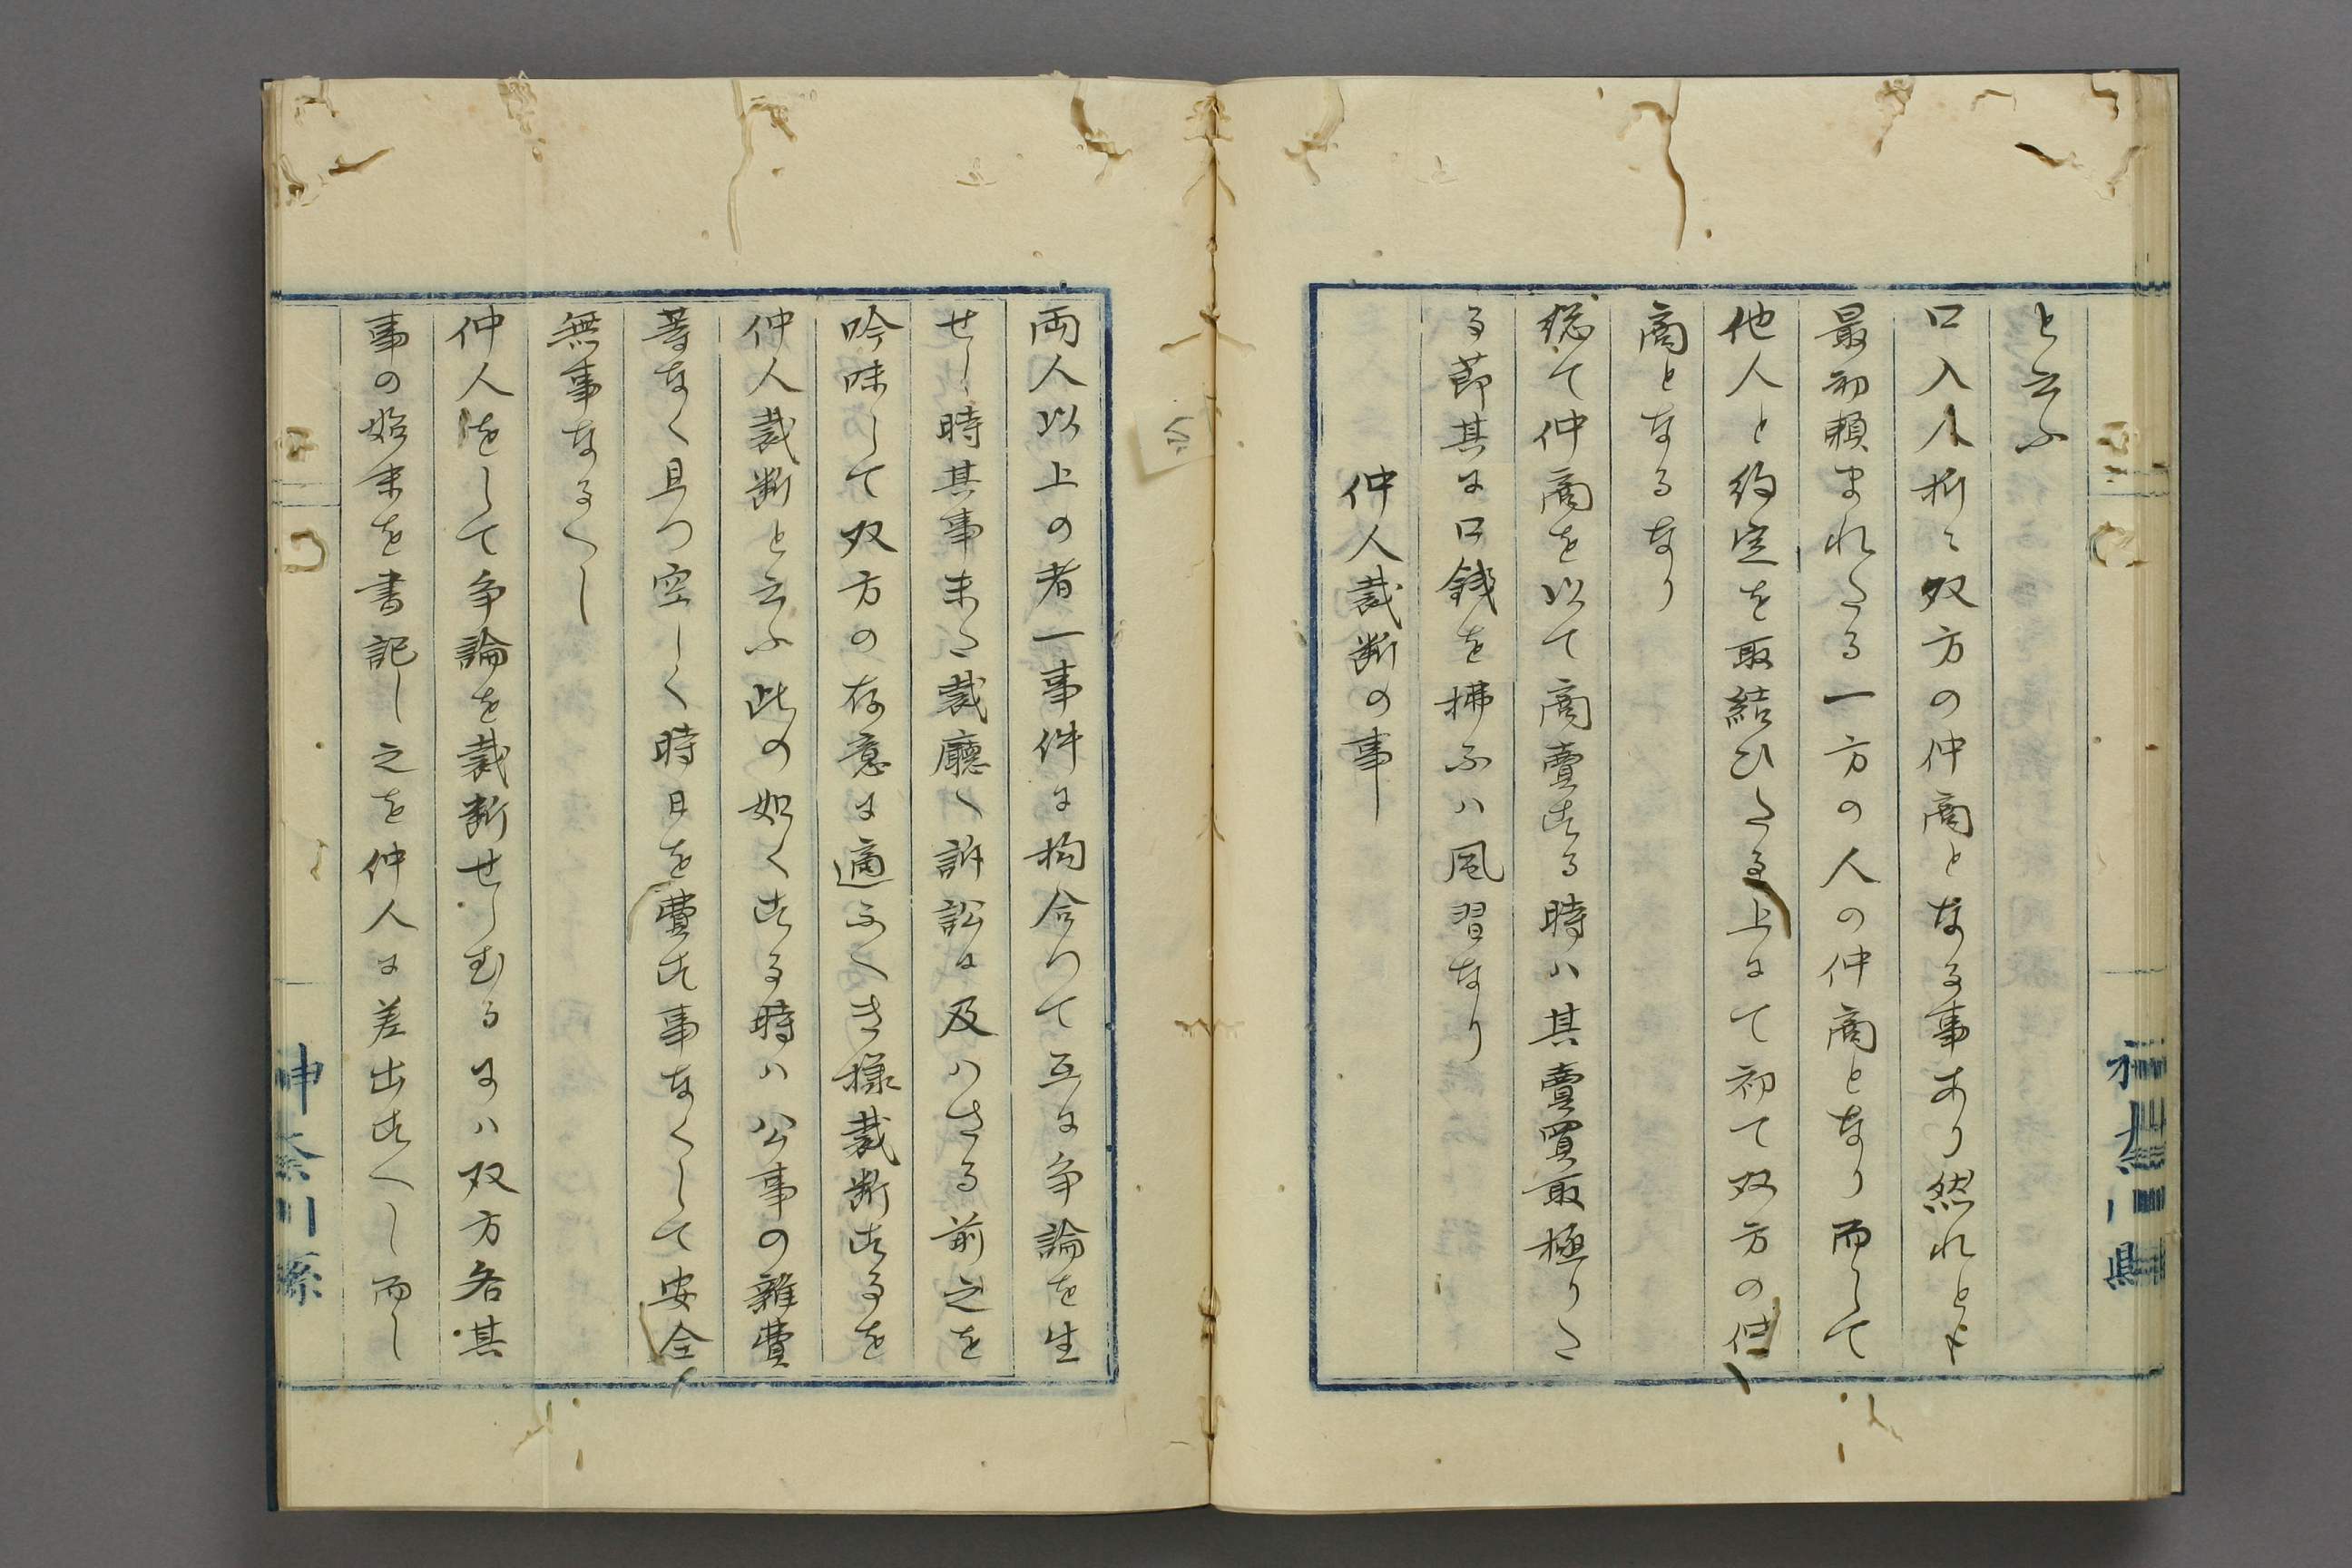 と云ふ
口入人折々双方の仲商となる事あり然れとも
最初頼まれたる一方の人の仲商となり而して
他人と約定を取結ひたる上にて初て双方の仲
商となるなり
総て仲商を以て商賣する時ハ其賣買取極りた
る節其に口銭を拂ふハ風習なり
仲人裁断の事
両人以上の者一事件に拘合つて互に争論を生
せし時其事未た裁廳へ訴訟に及ハさる前之を
吟味して双方の存意に適ふへき様裁断するを
仲人裁断と云ふ此の如くする時ハ公事の雑費
等なく且つ空しく時日を費す事なくして安全
無事なるへし
仲人をして争論を裁断せしむるにハ双方各其
事の始末を書記し之を仲人に差出すへし而し
神奈川縣